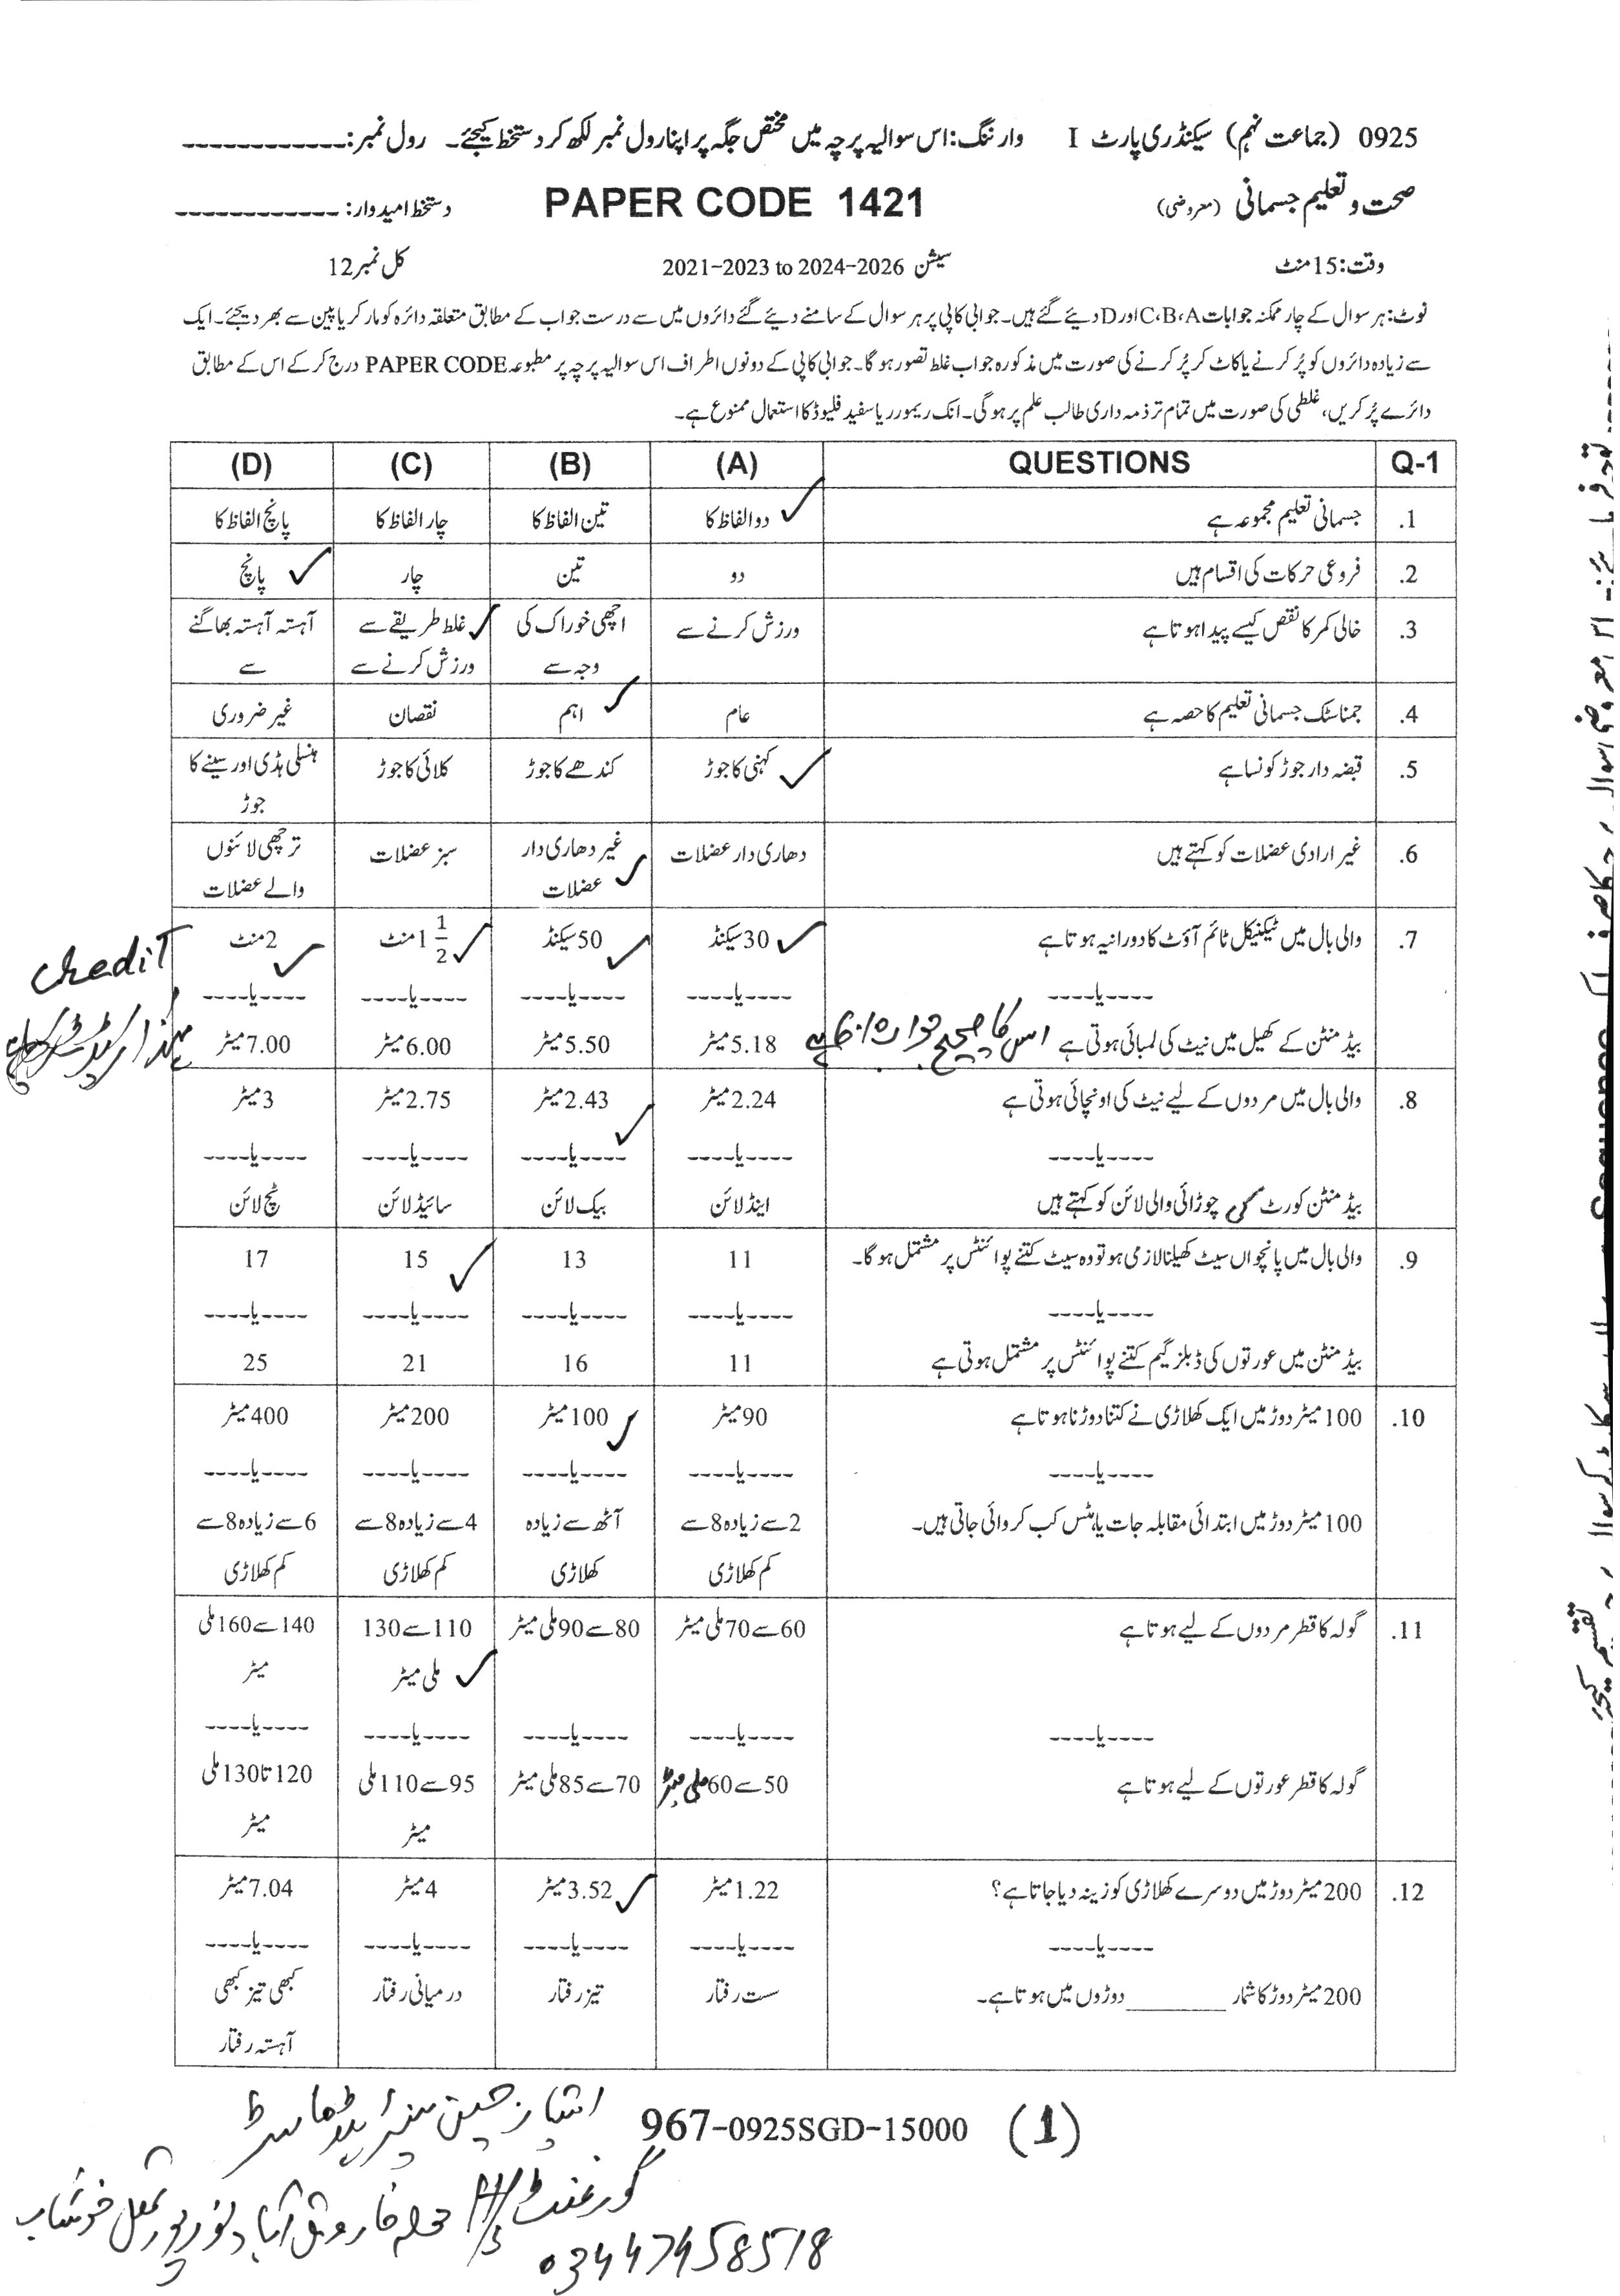 0925 (جماعت نہم) سیکنڈری پارٹ I وارننگ: اس سوالیہ پرچہ میں مختص جگہ پر اپنا رول نمبر لکھ کر دستخط کیجئے۔ رول نمبر: ------------
صحت و تعلیم جسمانی (معروضی) PAPER CODE 1421 دستخط امیدوار: ------------
وقت: 15 منٹ سیشن 2021-2023 to 2024-2026 کل نمبر 12
نوٹ: ہر سوال کے چار ممکنہ جوابات A،B،C اور D دیئے گئے ہیں۔ جوابی کاپی پر ہر سوال کے سامنے دیئے گئے دائروں میں سے درست جواب کے مطابق متعلقہ دائرہ کو مارکر یا پین سے بھر دیجئے۔ ایک
سے زیادہ دائروں کو پُر کرنے یا کاٹ کر پُر کرنے کی صورت میں مذکورہ جواب غلط تصور ہو گا۔ جوابی کاپی کے دونوں اطراف اس سوالیہ پرچہ پر مطبوعہ PAPER CODE درج کر کے اس کے مطابق
دائرے پُر کریں، غلطی کی صورت میں تمام تر ذمہ داری طالب علم پر ہو گی۔ انک ریمورر یا سفید فلیوڈ کا استعمال ممنوع ہے۔
Q-1 QUESTIONS (A) (B) (C) (D)
1. جسمانی تعلیم مجموعہ ہے دو الفاظ کا تین الفاظ کا چار الفاظ کا پانچ الفاظ کا
2. فروعی حرکات کی اقسام ہیں دو تین چار پانچ
3. خالی کمر کا نقص کیسے پیدا ہوتا ہے ورزش کرنے سے اچھی خوراک کی غلط طریقے سے آہستہ آہستہ بھاگنے
وجہ سے ورزش کرنے سے سے
4. جمناسٹک جسمانی تعلیم کا حصہ ہے عام اہم نقصان غیر ضروری
5. قبضہ دار جوڑ کونسا ہے کہنی کا جوڑ کندھے کا جوڑ کلائی کا جوڑ ہنسلی ہڈی اور سینے کا
جوڑ
6. غیر ارادی عضلات کو کہتے ہیں دھاری دار عضلات غیر دھاری دار سبز عضلات ترچھی لائنوں
عضلات والے عضلات
7. والی بال میں ٹیکنیکل ٹائم آؤٹ کا دورانیہ ہوتا ہے 30 سیکنڈ 50 سیکنڈ 1 1/2 منٹ 2 منٹ
Credit
----یا---- ----یا---- ----یا---- ----یا---- ----یا----
بیڈ منٹن کے کھیل میں نیٹ کی لمبائی ہوتی ہے اس کا صحیح جواب 6.10 ہے 5.18 میٹر 5.50 میٹر 6.00 میٹر 7.00 میٹر
8. والی بال میں مردوں کے لیے نیٹ کی اونچائی ہوتی ہے 2.24 میٹر 2.43 میٹر 2.75 میٹر 3 میٹر
----یا---- ----یا---- ----یا---- ----یا---- ----یا----
بیڈ منٹن کورٹ کی چوڑائی والی لائن کو کہتے ہیں اینڈ لائن بیک لائن سائیڈ لائن ٹچ لائن
9. والی بال میں پانچواں سیٹ کھیلنا لازمی ہو تو وہ سیٹ کتنے پوائنٹس پر مشتمل ہو گا۔ 11 13 15 17
----یا---- ----یا---- ----یا---- ----یا---- ----یا----
بیڈ منٹن میں عورتوں کی ڈبلز گیم کتنے پوائنٹس پر مشتمل ہوتی ہے 11 16 21 25
10. 100 میٹر دوڑ میں ایک کھلاڑی نے کتنا دوڑنا ہوتا ہے 90 میٹر 100 میٹر 200 میٹر 400 میٹر
----یا---- ----یا---- ----یا---- ----یا---- ----یا----
100 میٹر دوڑ میں ابتدائی مقابلہ جات یا ہٹس کب کروائی جاتی ہیں۔ 2 سے زیادہ 8 سے آٹھ سے زیادہ 4 سے زیادہ 8 سے 6 سے زیادہ 8 سے
کم کھلاڑی کھلاڑی کم کھلاڑی کم کھلاڑی
11. گولہ کا قطر مردوں کے لیے ہوتا ہے 60 سے 70 ملی میٹر 80 سے 90 ملی میٹر 110 سے 130 140 سے 160 ملی
ملی میٹر میٹر
----یا---- ----یا---- ----یا---- ----یا---- ----یا----
گولہ کا قطر عورتوں کے لیے ہوتا ہے 50 سے 60 ملی میٹر 70 سے 85 ملی میٹر 95 سے 110 ملی 120 تا 130 ملی
میٹر میٹر
12. 200 میٹر دوڑ میں دوسرے کھلاڑی کو زینہ دیا جاتا ہے؟ 1.22 میٹر 3.52 میٹر 4 میٹر 7.04 میٹر
----یا---- ----یا---- ----یا---- ----یا---- ----یا----
200 میٹر دوڑ کا شمار ________ دوڑوں میں ہوتا ہے۔ سست رفتار تیز رفتار درمیانی رفتار کبھی تیز کبھی
آہستہ رفتار
967-0925SGD-15000 (1)
امتیاز حسین سنیئر ہیڈ ماسٹر
گورنمنٹ H/S محلہ فاروق آباد نورپور تھل خوشاب
03447458518